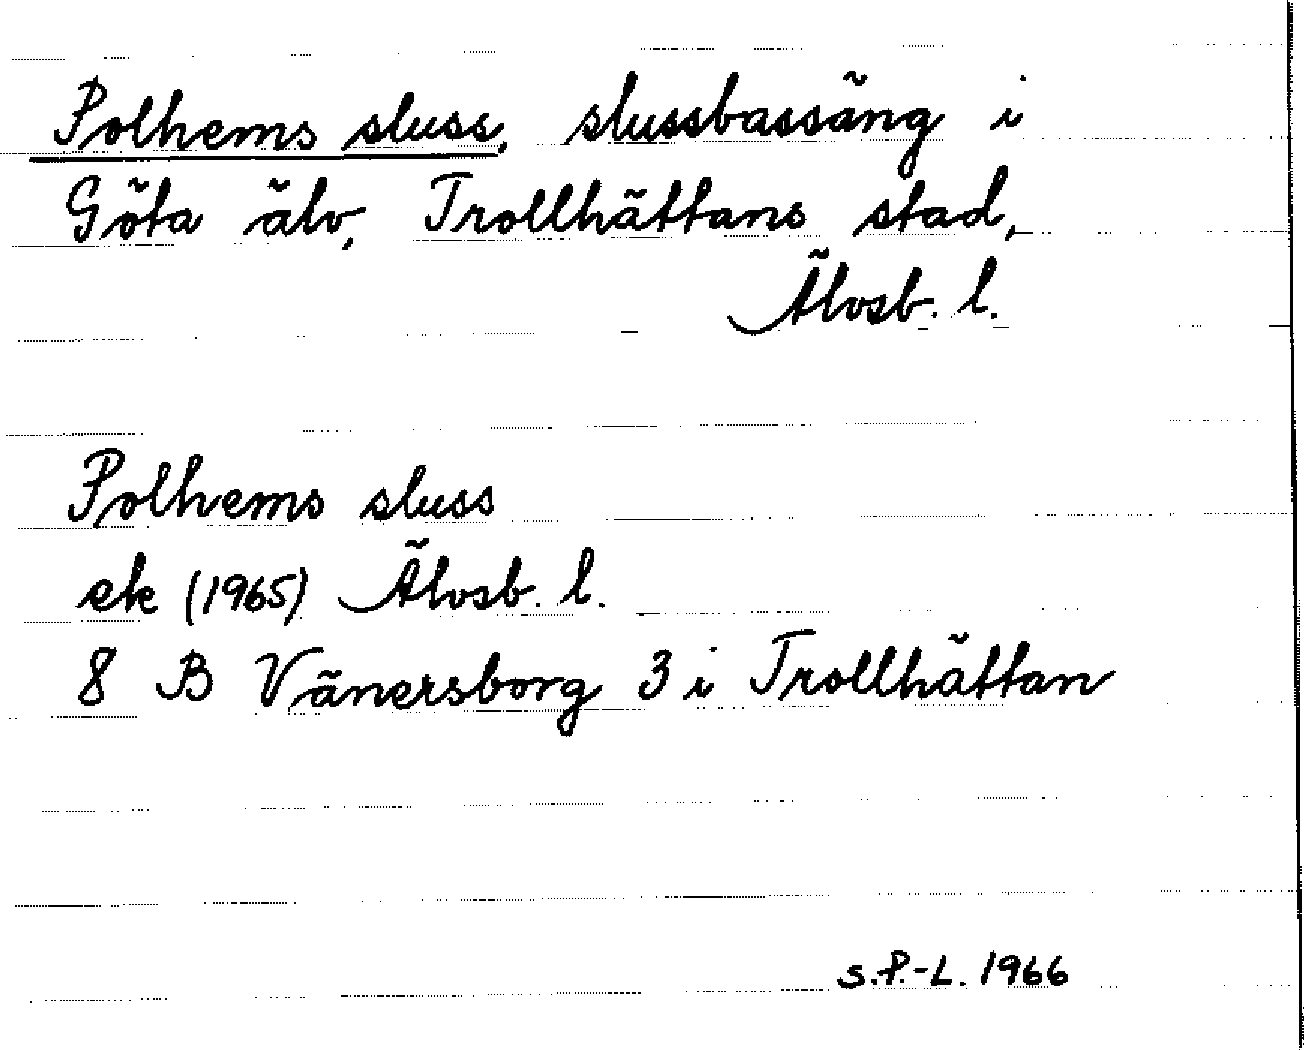 Polhems sluss, slussbassäng i
Göta älv, Trollhättans stad,
Älvsb. l.
Polhems sluss
ek (1965) Älvsb. l.
8 B Vänersborg 3 i Trollhättan
S.P.-L. 1966